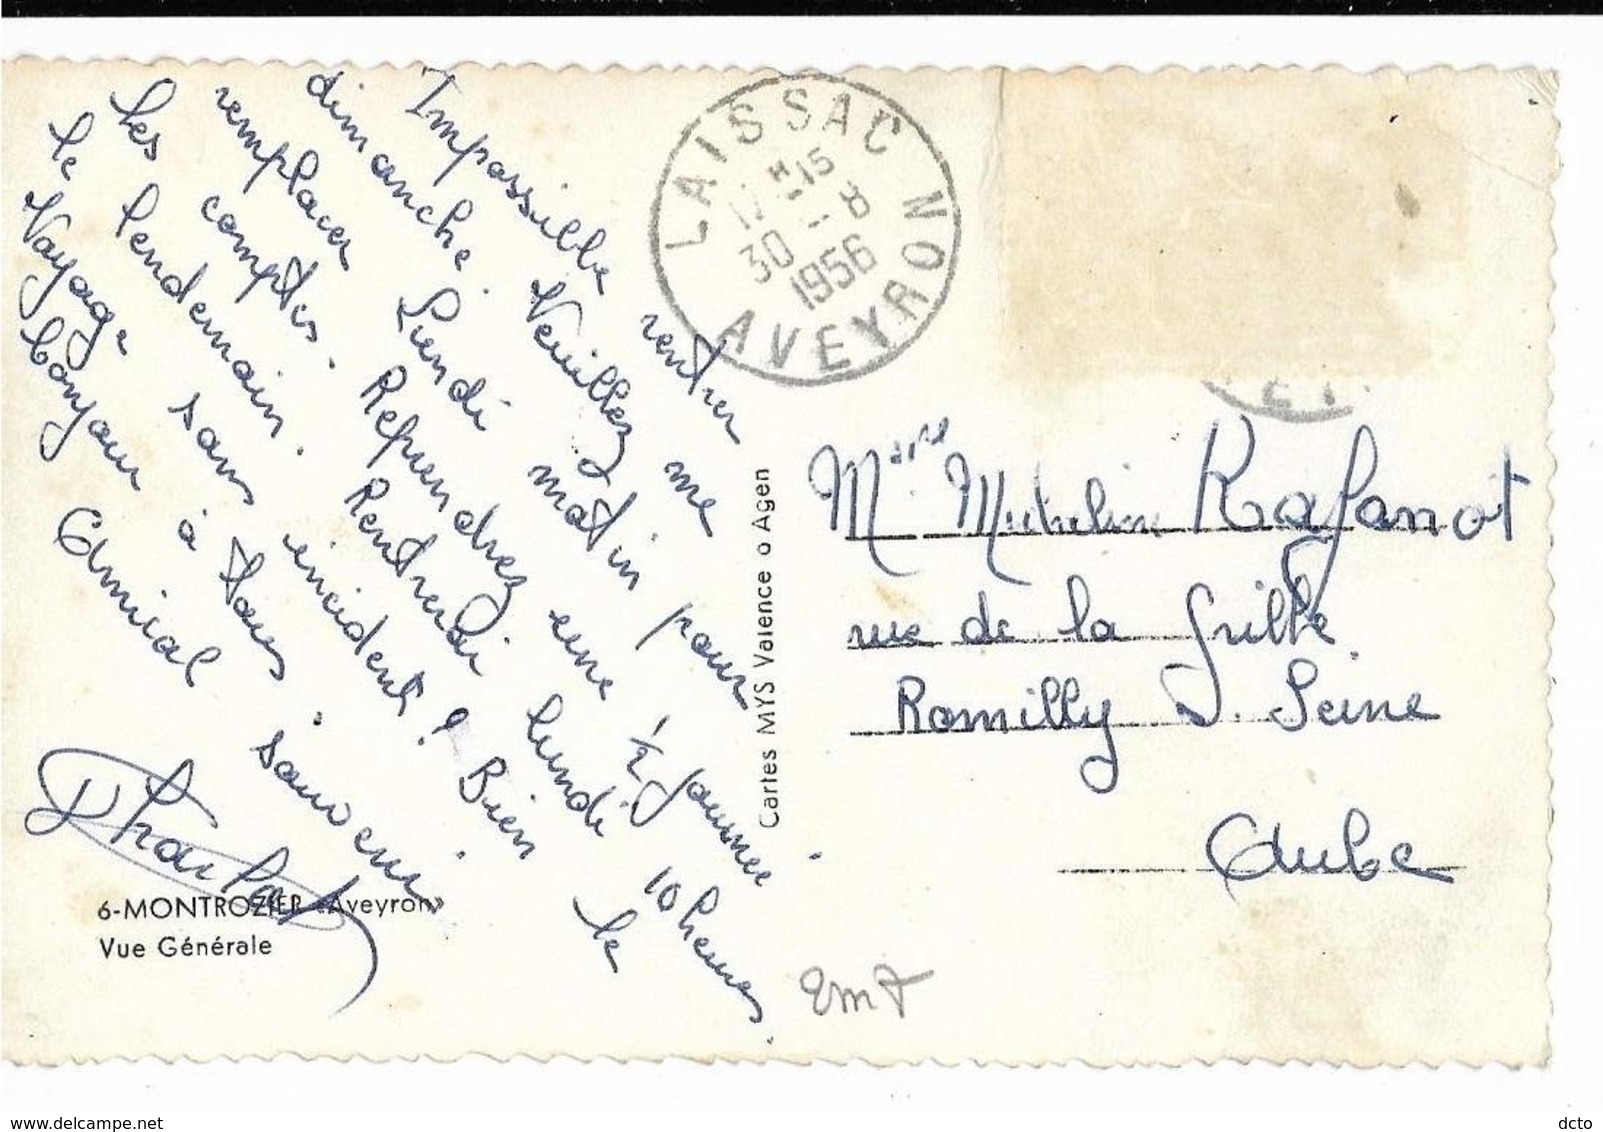 Impossible rentrer
dimanche. Veuillez me
remplacer Lundi matin pour
les comptes. Reprendrez une 1/2 journée
le lendemain. Rentrerai lundi 10 heures.
Voyage sans incident! Bien le
bonjour à tous.
Amical souvenir.
LAISSAC AVEYRON
30 - 8
1956
Mme Micheline Rafanot
rue de la Grille
Romilly S. Seine
Aube
Cartes MYS Valence o Agen
6-MONTROZIER «Aveyron»
Vue Générale
delcampe.net
dcto